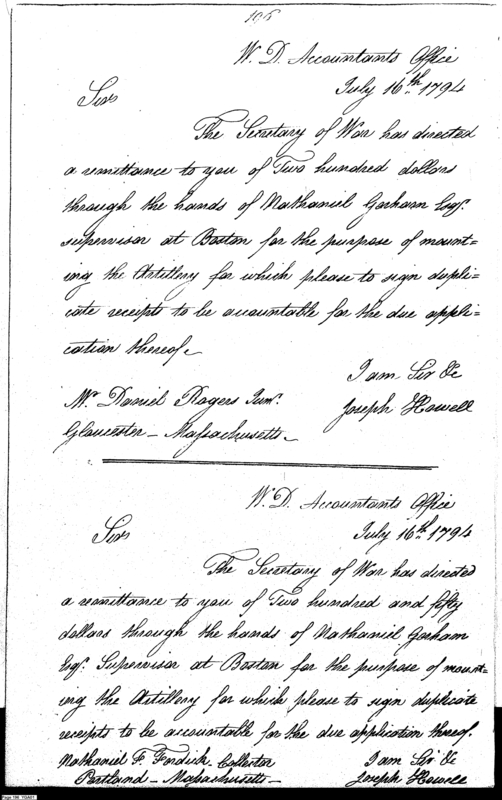 196
W. D. Accountants Office
July 16th 1794
Sir
The Secretary of War has directed
a remittance to you of Two hundred dollars
through the hands of Nathaniel Gorham Esqr.
supervisor at Boston for the purpose of mount=
ing the Artillery for which please to sign dupli=
cate receipts to be accountable for the due appli=
cation thereof.
I am Sir &c
Mr. Daniel Rogers Junr. Joseph Howell
Gloucester – Massachusetts –
W. D. Accountants Office
July 16th 1794
Sir
The Secretary of War has directed
a remittance to you of Two hundred and fifty
dollars through the hands of Nathaniel Gorham
Esqr. Supervisor at Boston for the purpose of mount=
ing the Artillery for which please to sign duplicate
receipts to be accountable for the due application thereof.
Nathaniel F. Fosdick Collector I am Sir &c
Portland – Massachusetts – Joseph Howell